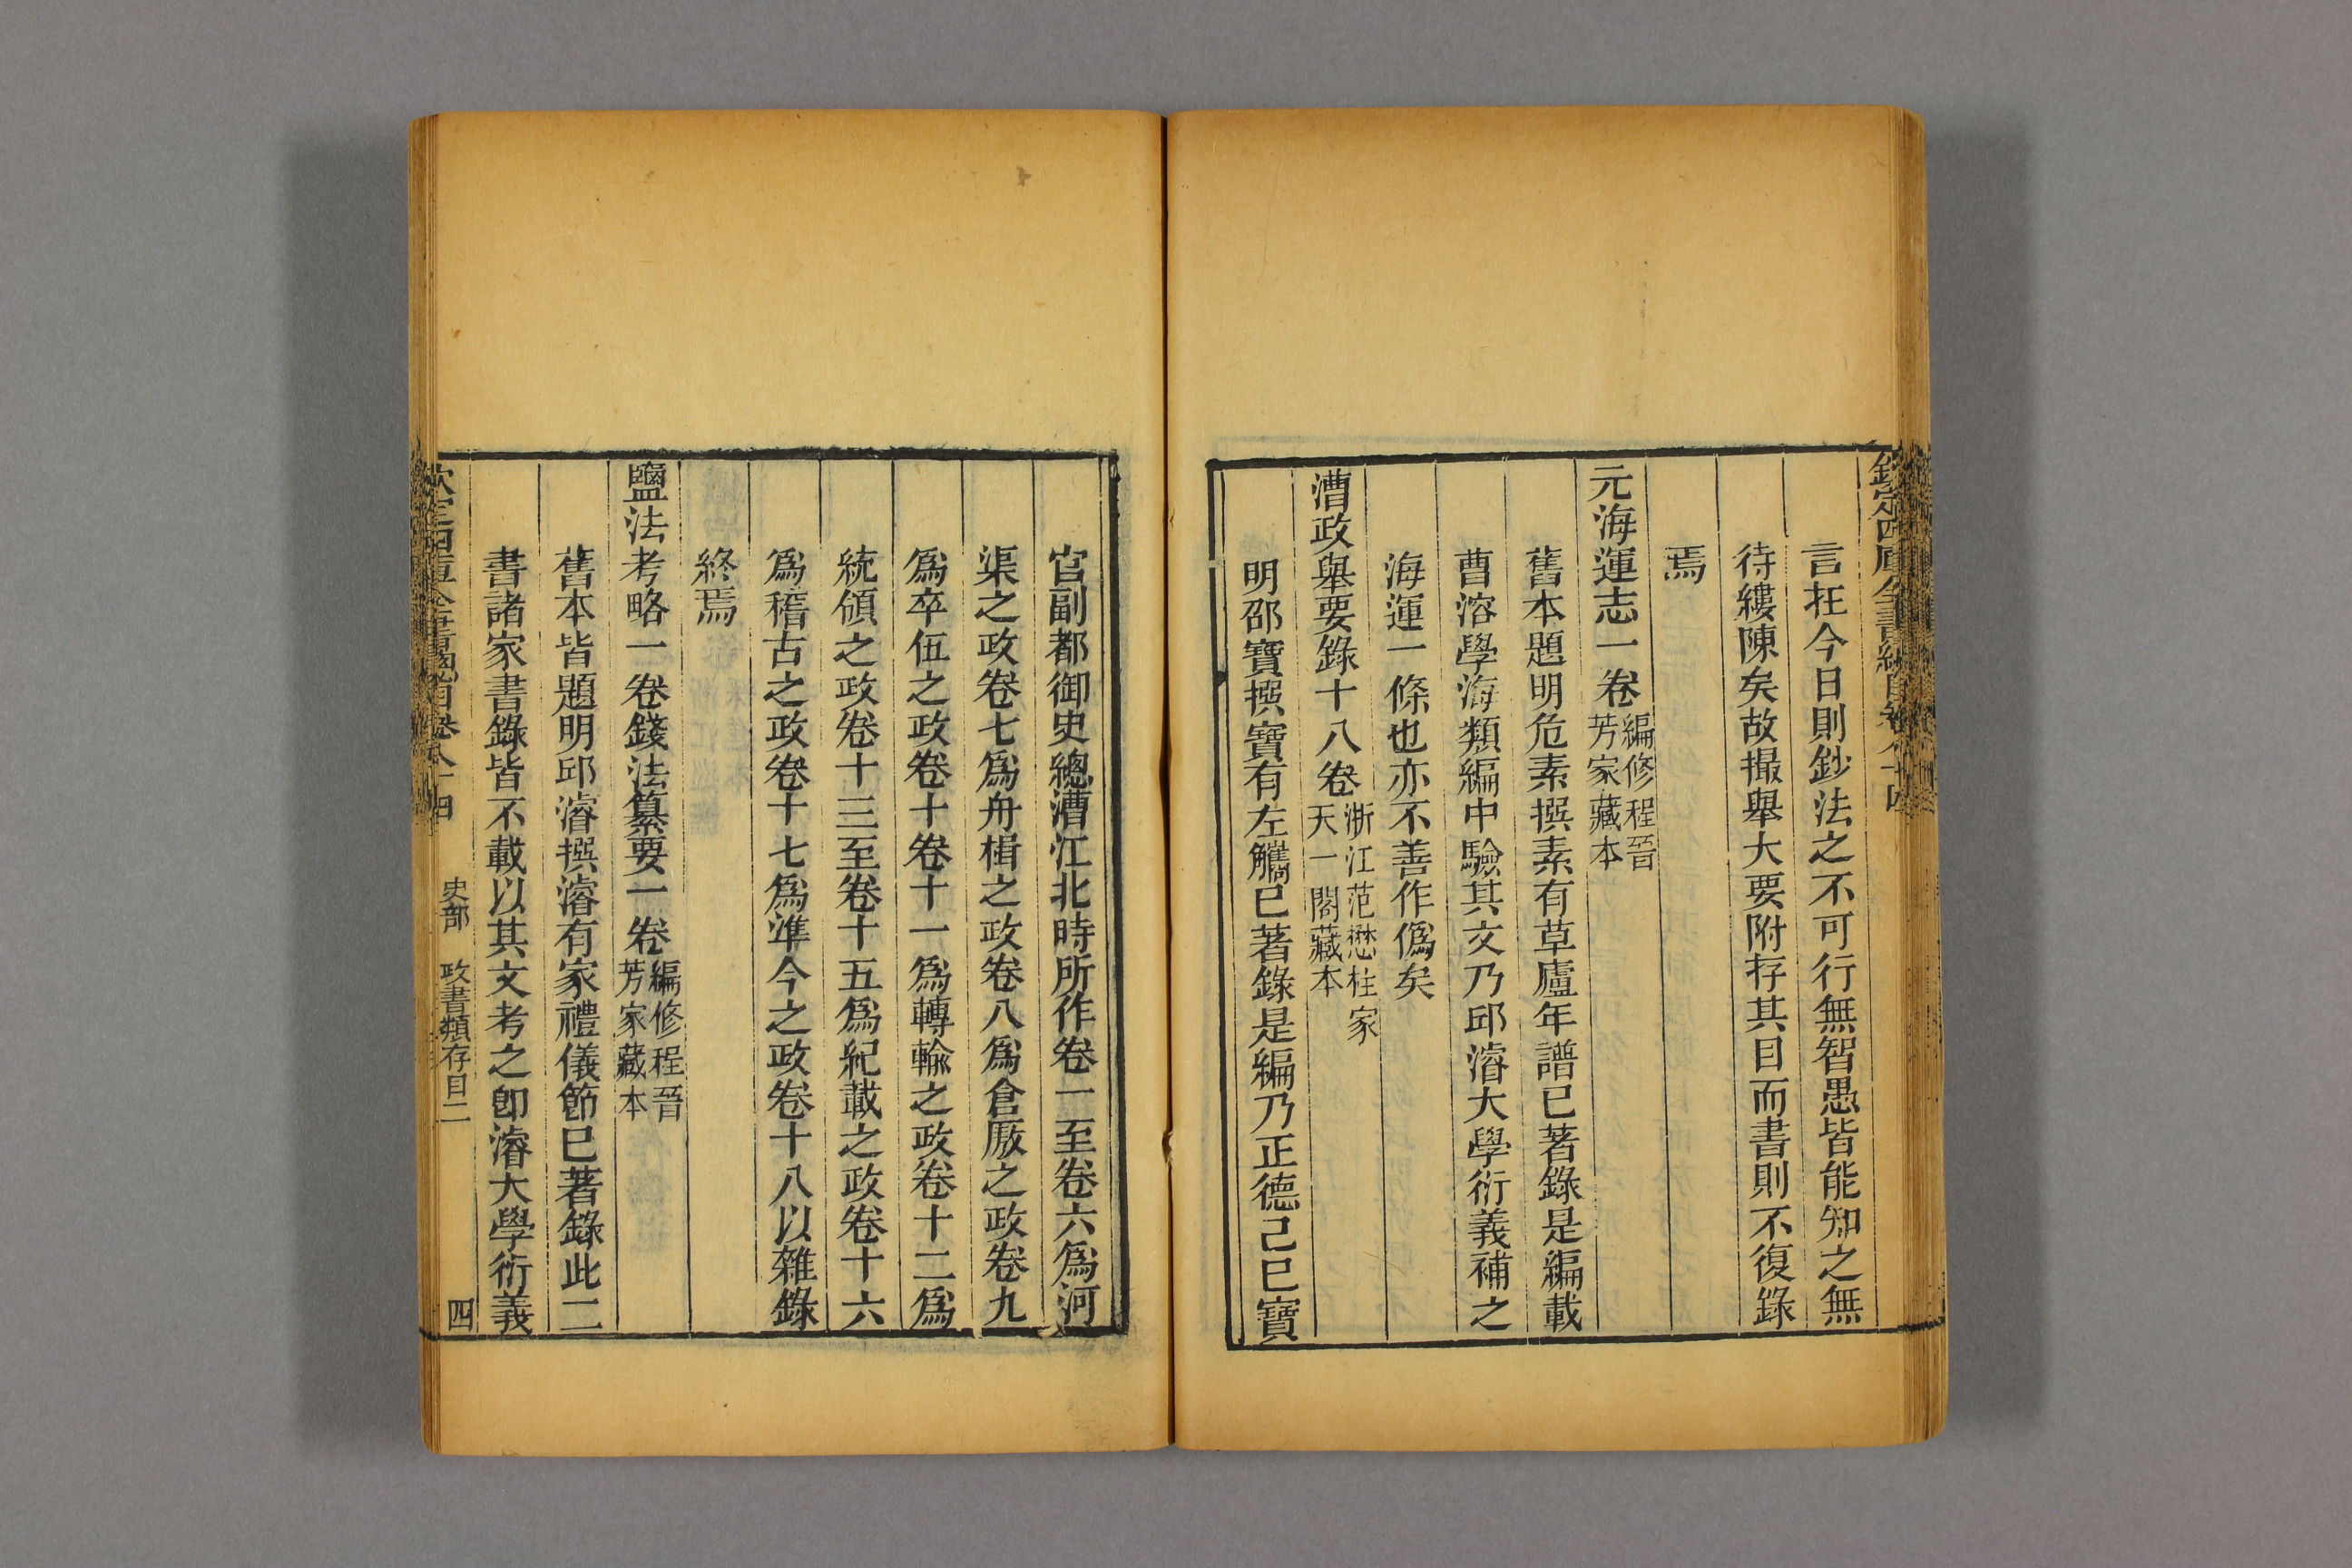 欽定四庫全書總目卷八十四
言在今日則鈔法之不可行無智愚皆能知之無
待縷陳矣故撮舉大要附存其目而書則不復錄
焉
元海運志一卷編修程晉芳家藏本
舊本題明危素撰素有草廬年譜已著錄是編載
曹溶學海類編中驗其文乃邱濬大學衍義補之
海運一條也亦不善作僞矣
漕政舉要錄十八卷浙江范懋柱家天一閣藏本
明邵寶撰寶有左觿已著錄是編乃正德己巳寶
官副都御史總漕江北時所作卷一至卷六爲河
渠之政卷七爲舟楫之政卷八爲倉厫之政卷九
爲卒伍之政卷十卷十一爲轉輸之政卷十二爲
統領之政卷十三至卷十五爲紀載之政卷十六
爲稽古之政卷十七爲準今之政卷十八以雜錄
終焉
鹽法考略一卷錢法纂要一卷編修程晉芳家藏本
舊本皆題明邱濬撰濬有家禮儀節已著錄此二
書諸家書錄皆不載以其文考之卽濬大學衍義
欽定四庫全書總目卷八十四 史部 政書類存目二 四